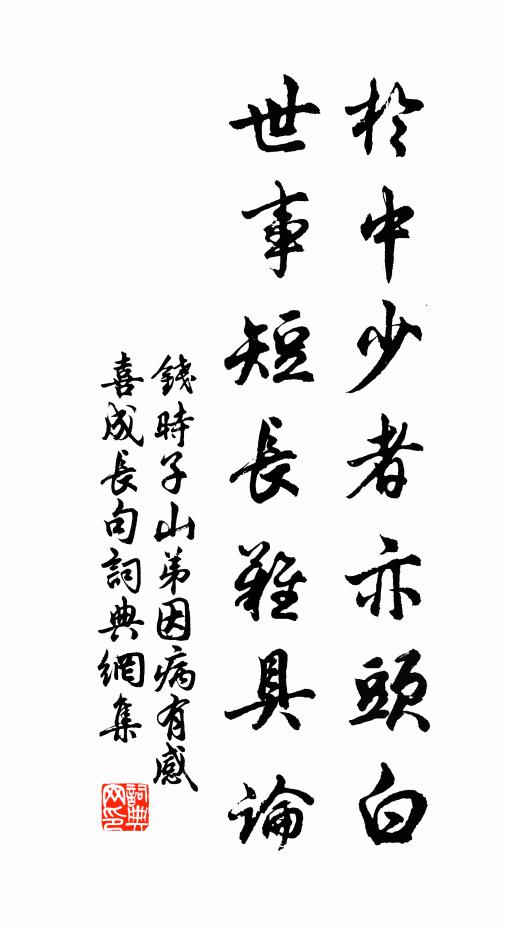 於中少者亦頭白
世事短長難具論
錢時子山弟因病有感
喜成長句詞典網集
詞典網印